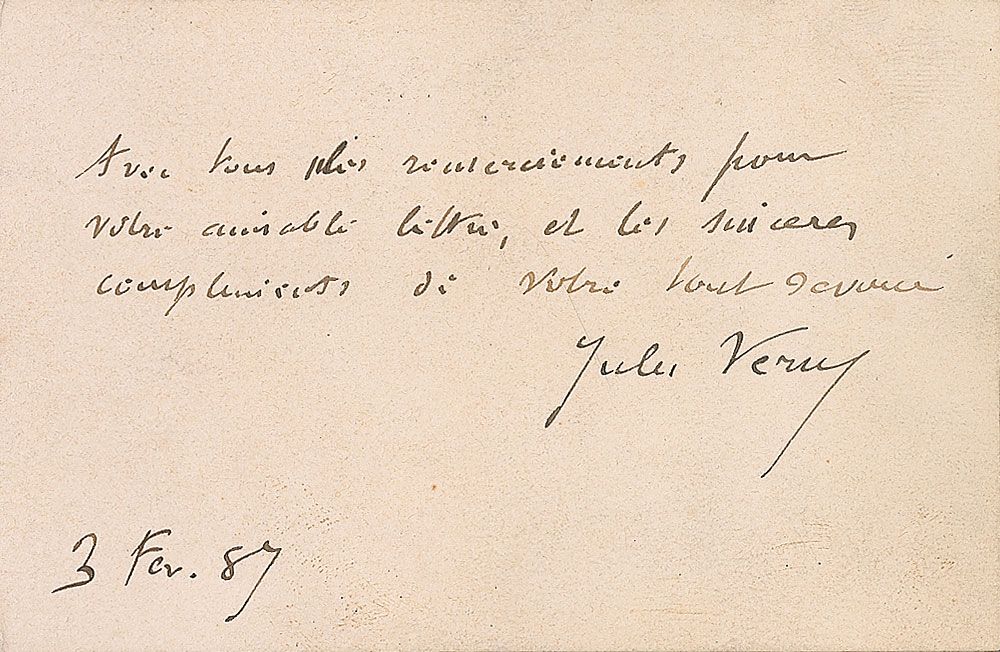 Avec tous mes remerciements pour
votre aimable lettre, et les sinceres
compliments de votre tout devoué
Jules Verne
3 Fev. 87